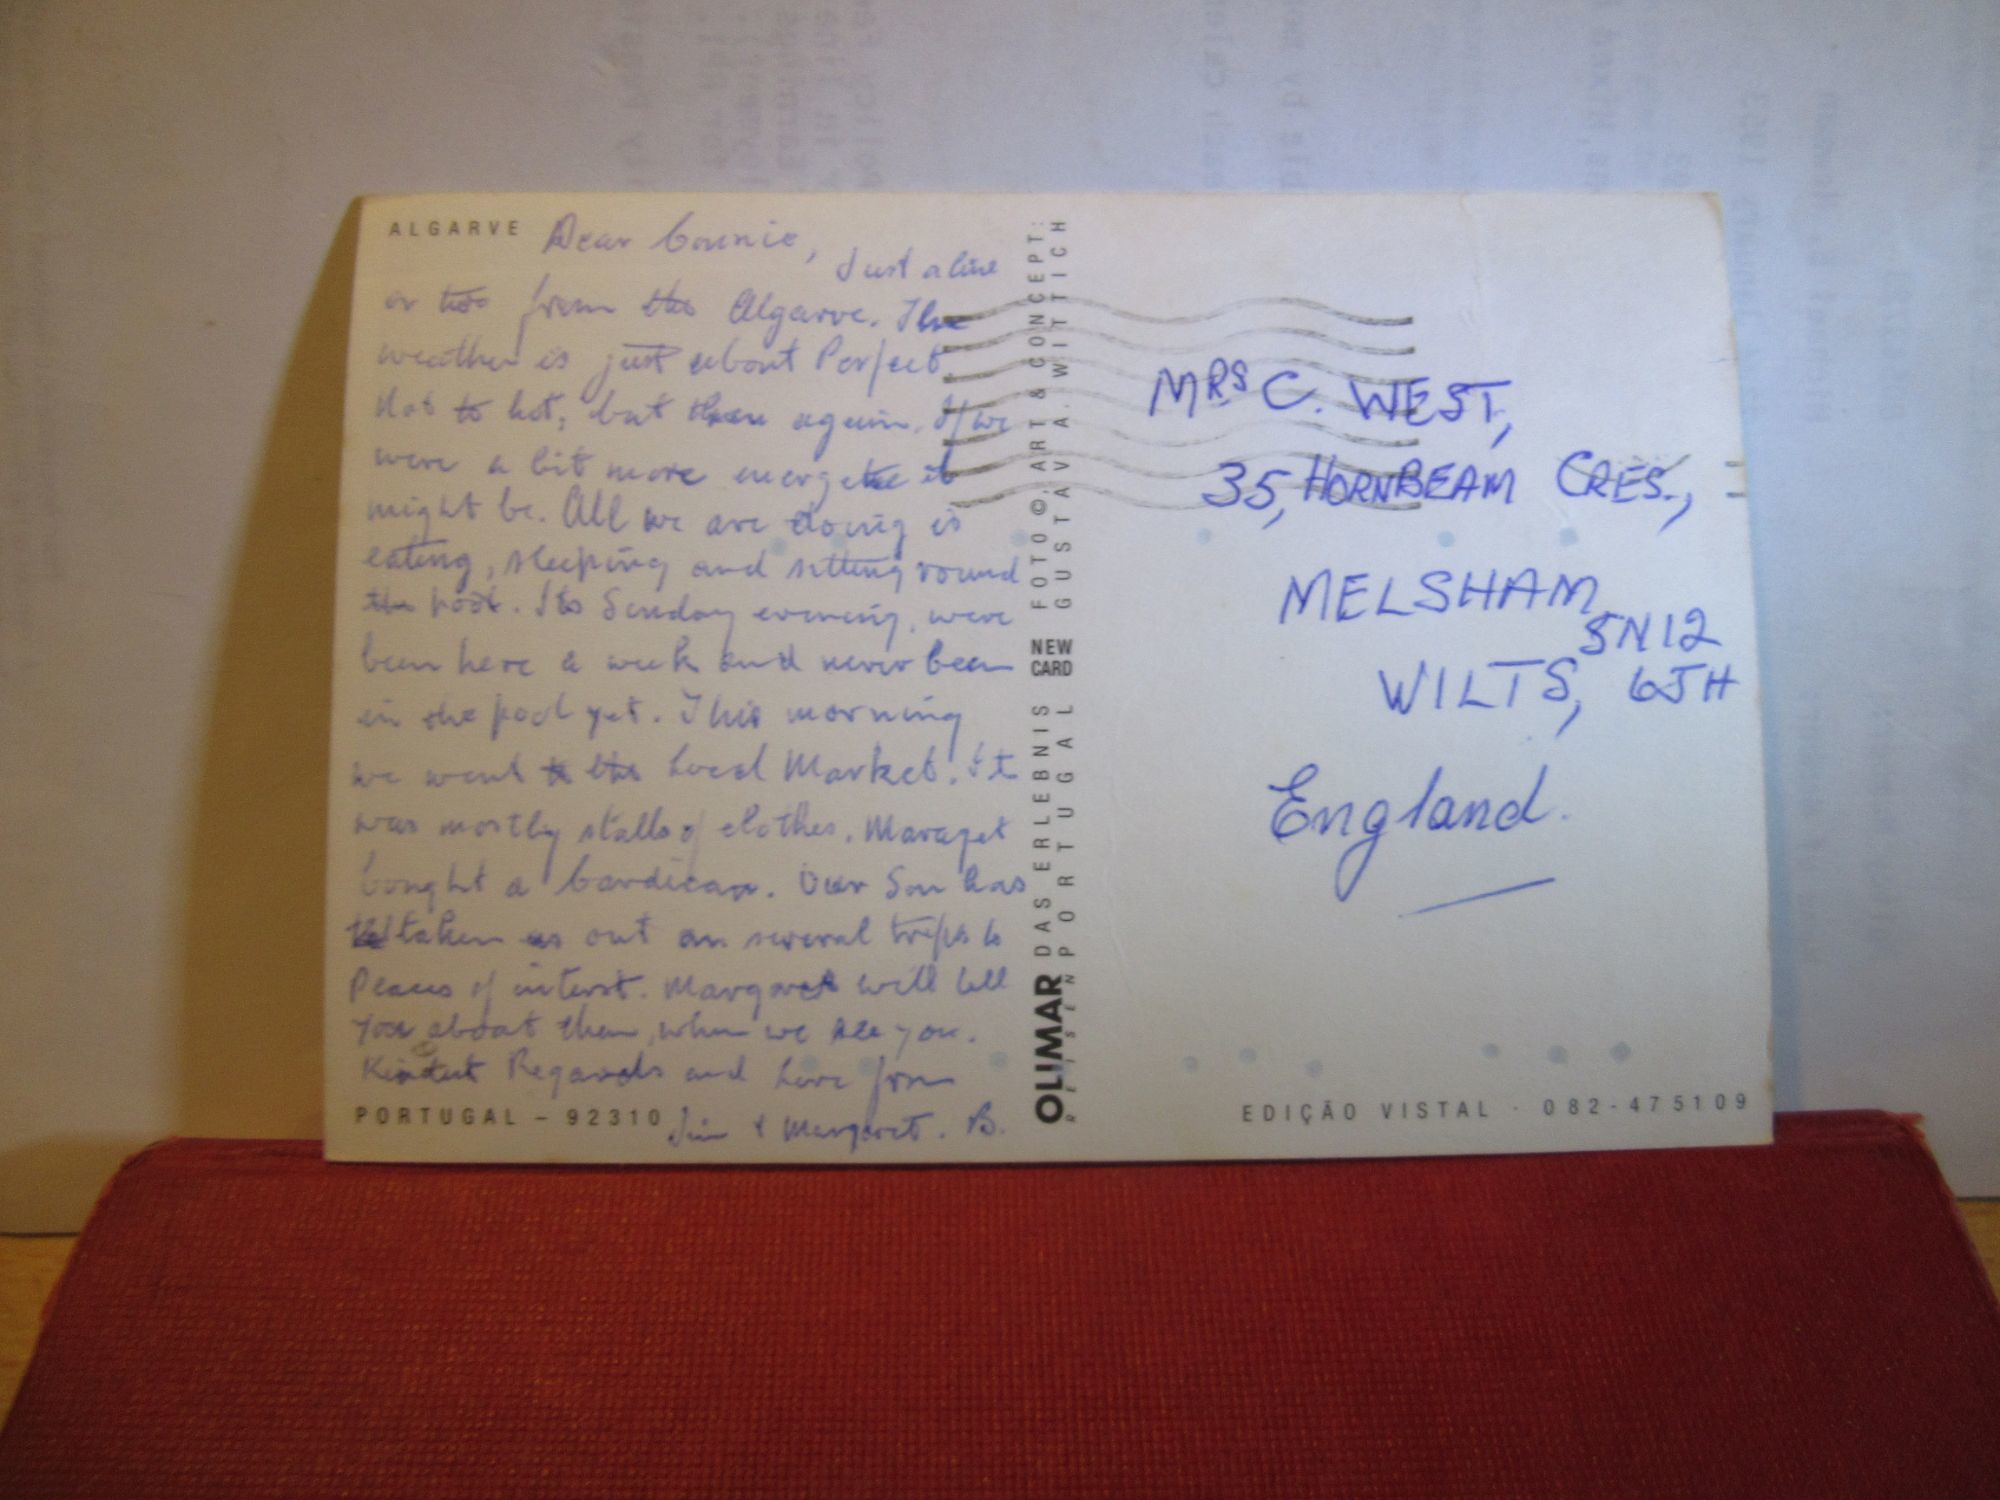 ALGARVE
Dear Connie,
Just a line
or two from the Algarve. The
weather is just about Perfect.
Not to hot, but then again. If we
were a bit more energetic it
might be. All we are doing is
eating, sleeping and sitting round
the pool. Its Sunday evening, were
been here a week and never been
in the pool yet. This morning
we went to the Local Market. It
was mostly stalls of clothes. Maraget
bought a Cardican. Our Son has
taken us out on several trips to
Places of interst. Margaret will tell
you about them, when we see you.
Kindest Regards and Love from
Jim & Margaret. B.
PORTUGAL – 92310
OLIMAR DAS ERLEBNIS NEW CARD FOTO ©, ART & CONCEPT:
REISEN PORTUGAL GUSTAV A. WITTICH
MRS C. WEST,
35, HORNBEAM CRES.,
MELSHAM
SN12
WILTS, 6JH
England.
EDIÇÃO VISTAL · 082-475109